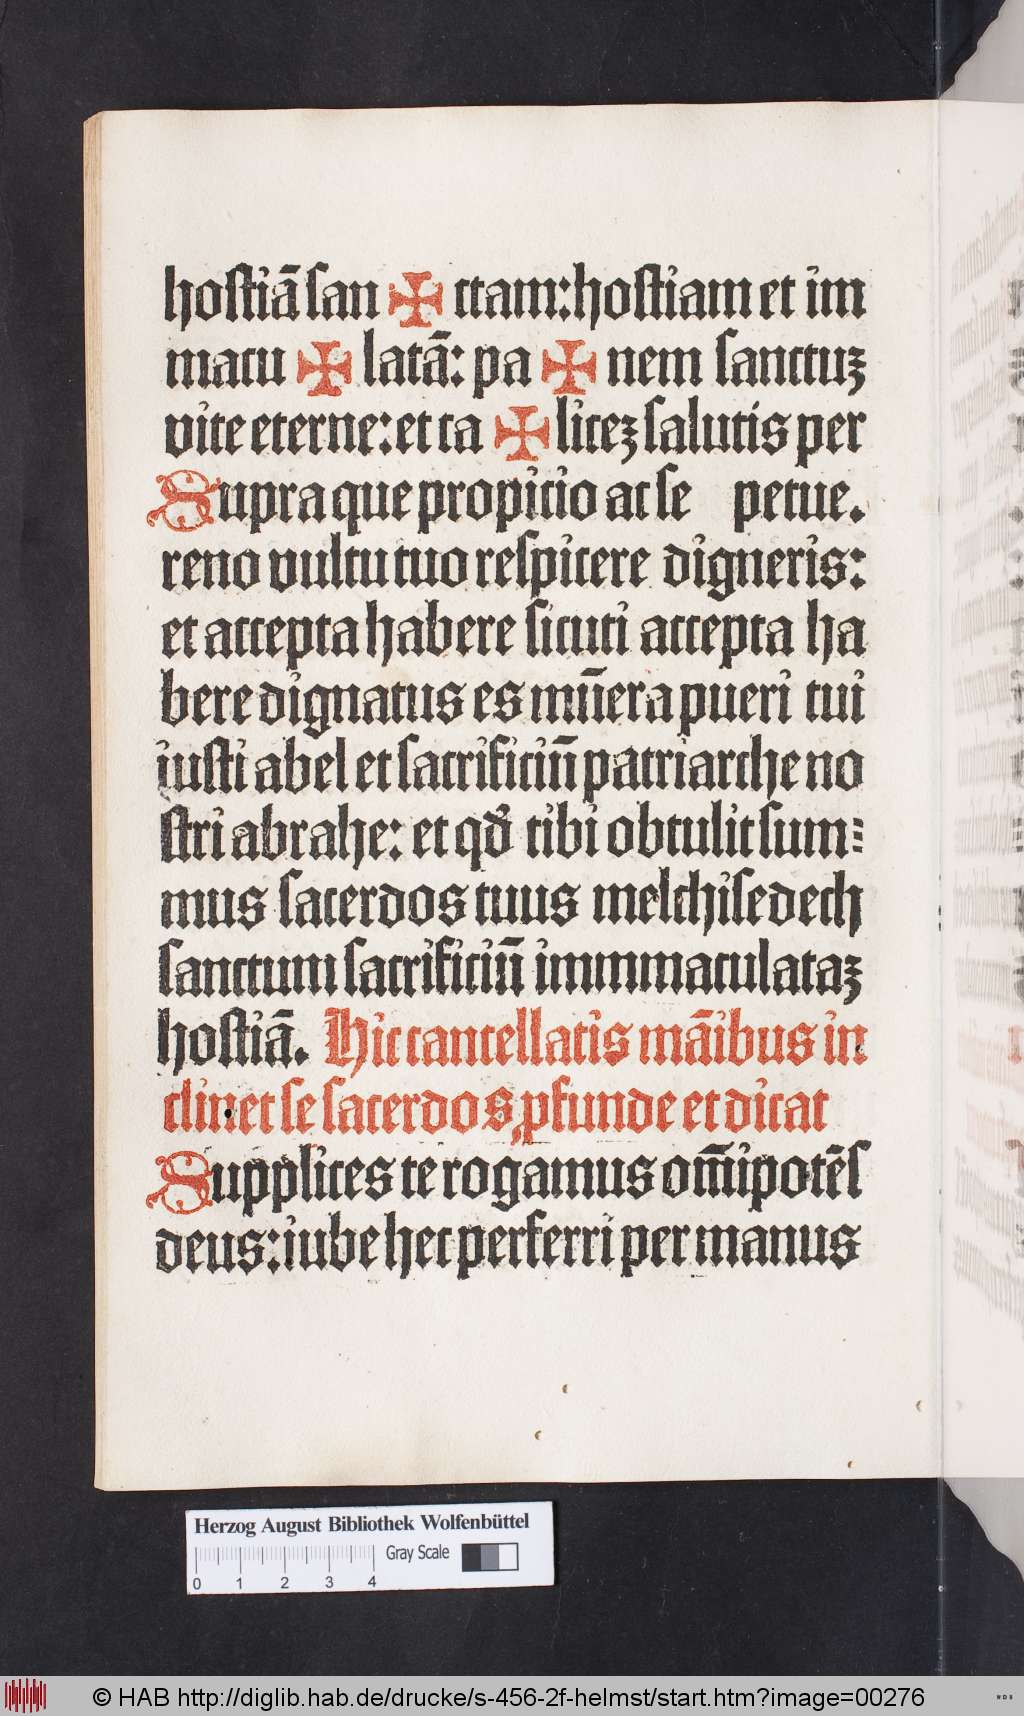 hostiā san ✠ ctam: hostiam et im
macu ✠ latā: pa ✠ nem sanctuꝫ
vite eterne: et ca ✠ liceꝫ salutis per
Supra que propicio ac se petue.
reno vultu tuo respicere digneris:
et accepta habere sicuti accepta ha
bere dignatus es mūera pueri tui
iusti abel et sacrificiū patriarche no
stri abrahe: et qđ tibi obtulit sum⸗
mus sacerdos tuus melchisedech
sanctum sacrificiū immmaculataꝫ
hostiā. Hic cancellatis māibus in
clinet se sacerdos, pfunde et dicat
Supplices te rogamus om̄ipotēs
deus: iube hec perferri per manus
Herzog August Bibliothek Wolfenbüttel
Gray Scale
0 1 2 3 4
© HAB http://diglib.hab.de/drucke/s-456-2f-helmst/start.htm?image=00276